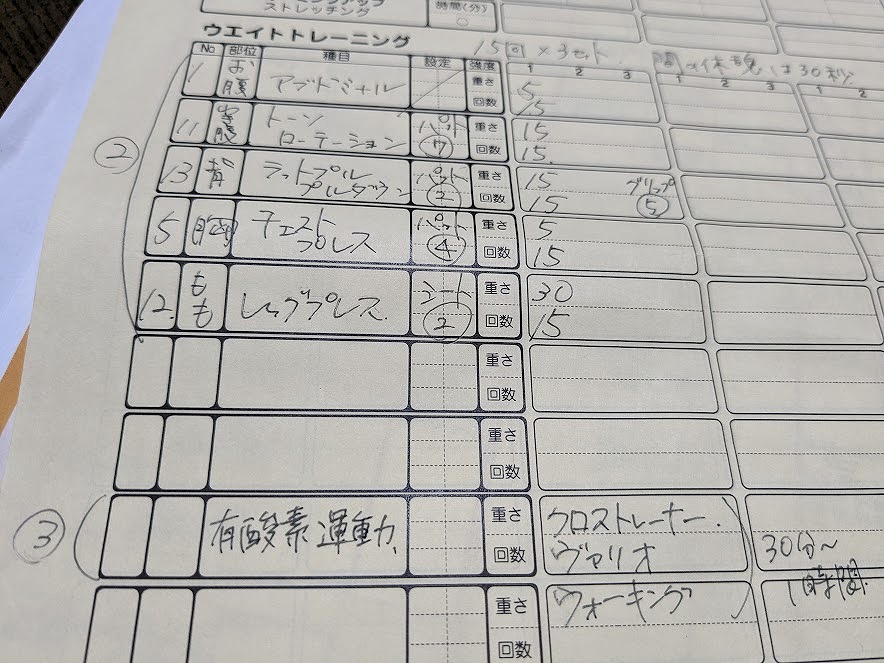 ストレッチング
時間(分)
ウエイトトレーニング
15回 × 3セット 間の休憩は30秒
No 部位 種目 設定 強度 1 2 3 1 2 3 1 2
1 お腹 アブドミナル 重さ 5
回数 15
11 わき腹 トーン パット 重さ 15
ローテーション 7 回数 15.
13 背 ラットプル パット 重さ 15 グリップ
プルダウン 2 回数 15 5
5 胸 チェスト パット 重さ 5
プレス 4 回数 15
12. もも レッグプレス. シート 重さ 30
2 回数 15
②
重さ
回数
重さ
回数
③
有酸素運動. 重さ クロストレーナー.
回数 ヴァリオ 30分~
重さ ウォーキング 1時間.
回数